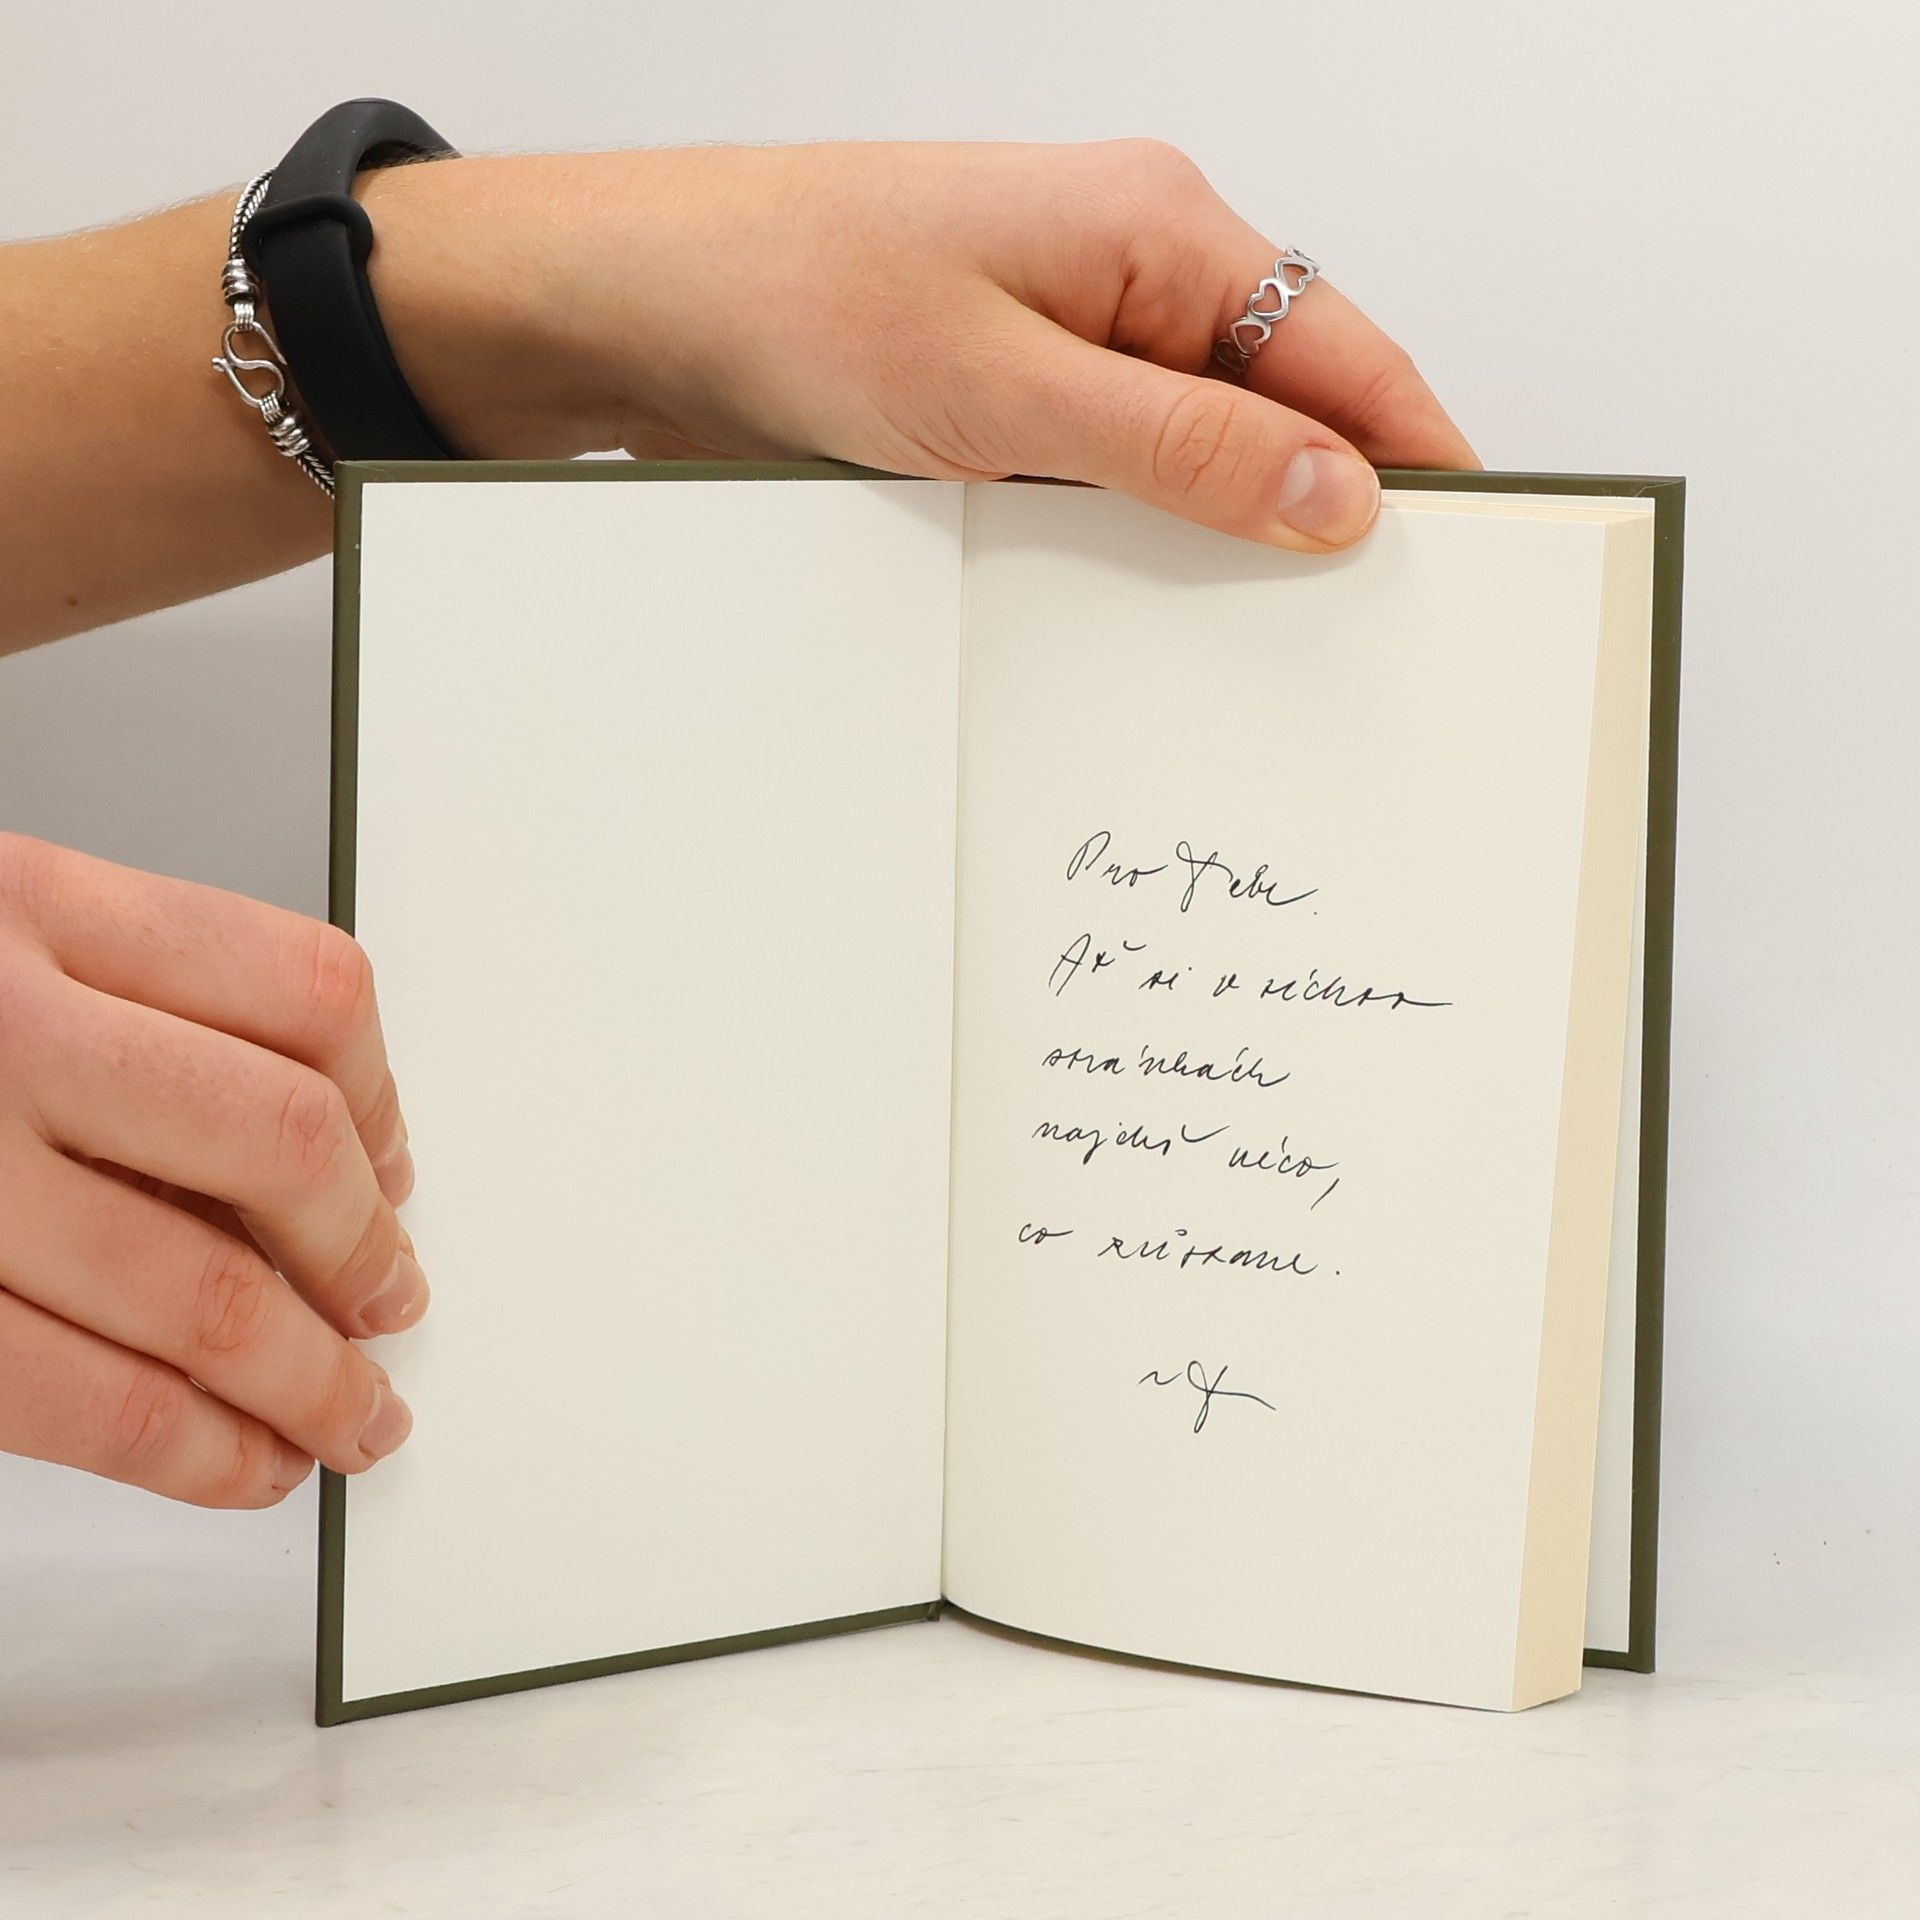 Pro Tebe.
Ať si v těchto
stránkách
najdeš něco,
co zůstane.